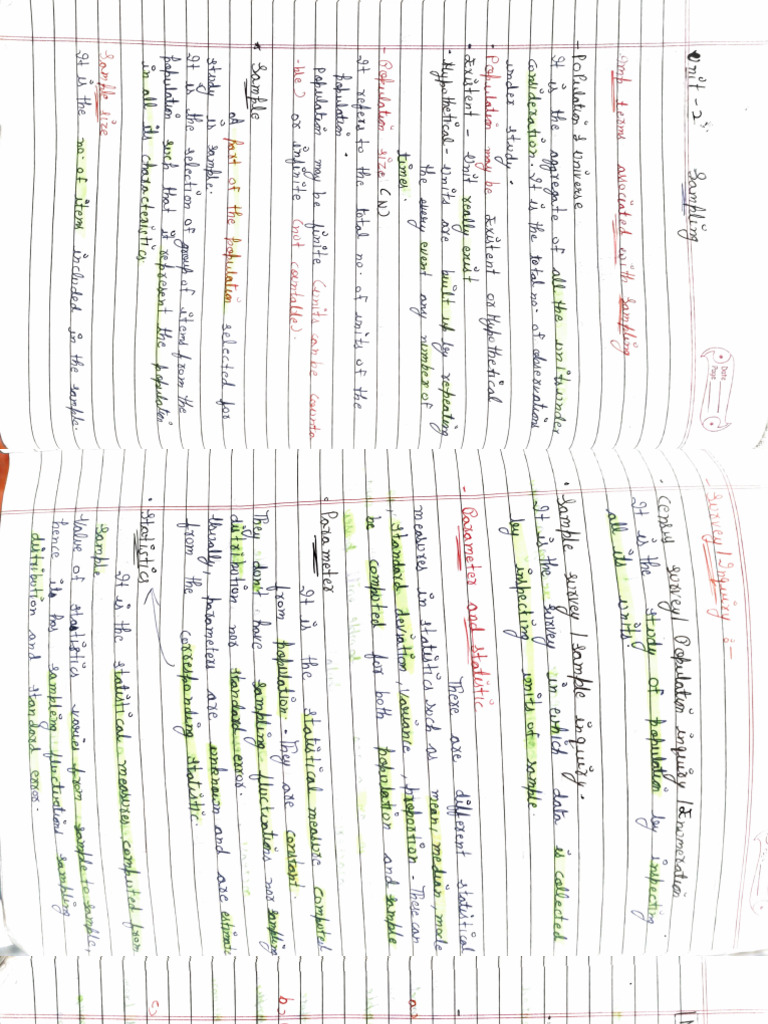 Unit - 2: Sampling
Date
Page
Imp terms associated with sampling
- Population & Universe
It is the aggregate of all the units under
consideration. It is the total no. of observations
under study.
Population may be Existent or Hypothetical
• Existent - Unit really exist
• Hypothetical - Units are built up by repeating
the every event any number of
times.
- Population size: (N)
It refers to the total no. of units of the
population.
population may be finite (units can be counta
-ble) or infinite (not countable).
* Sample
A part of the population selected for
study is sample.
It is the selection of group of items from the
population such that is represent the population
in all its characteristics.
Sample size
It is the no. of items included in the sample.
- Survey / Inquiry :-
• Census survey / Population inquiry / Enumeration
It is the study of population by inspecting
all its units.
• Sample survey / Sample inquiry.
It is the survey in which data is collected
by inspecting units of sample.
- Parameter and Statistic
There are different statistical
measures in statistics such as mean, median, mode
, standard deviation, variance, proportion. These can
be computed for both population and sample
• Parameter
It is the statistical measure computed
from population. They are constant.
They don't have sampling fluctuations nor sampling
distribution nor standard error.
Usually, parameters are unknown and are estimate
from the corresponding statistic.
• Statistics
It is the statistical measures computed from
sample
Value of statistics varies from sample to sample,
hence its has sampling fluctuations sampling
distribution and standard error.
a)
b)
c)